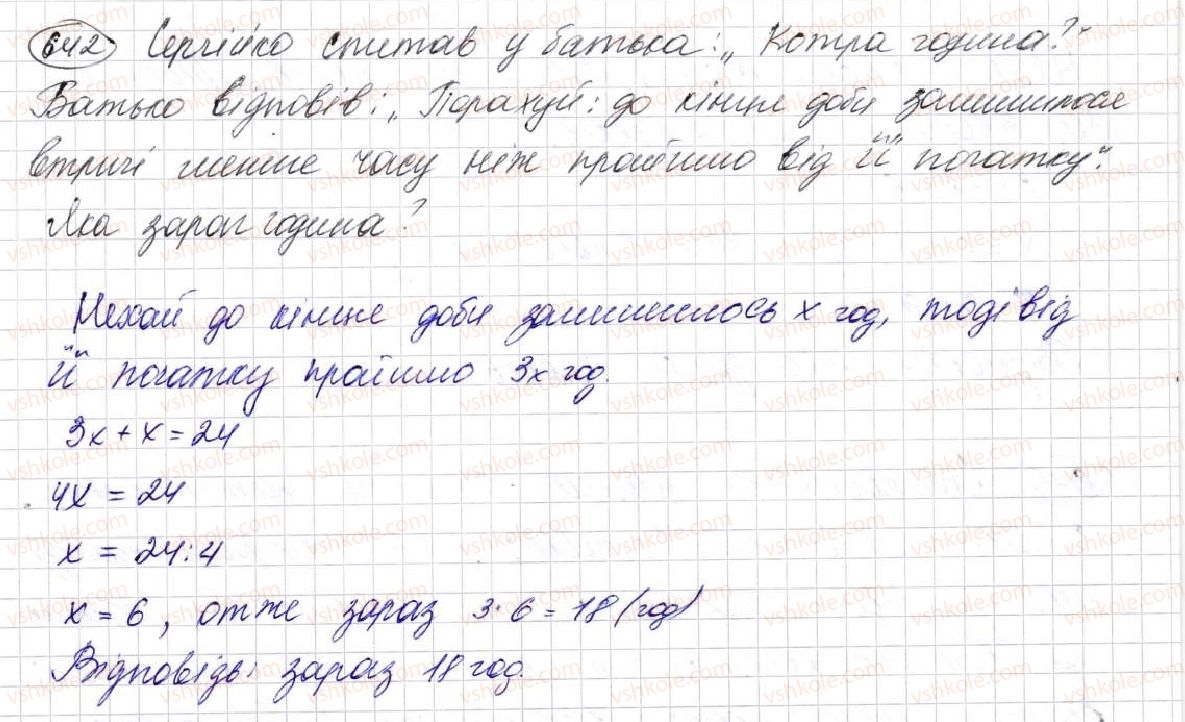 642 Сергійко спитав у батька: „Котра година?"
Батько відповів: „Порахуй: до кінця доби залишилося
втричі менше часу ніж пройшло від її початку".
Яка зараз година?
Нехай до кінця доби залишилось x год, тоді від
її початку пройшло 3x год.
3x + x = 24
4x = 24
x = 24:4
x = 6, отже зараз 3·6 = 18 (год)
Відповідь: зараз 18 год.
vshkole.com